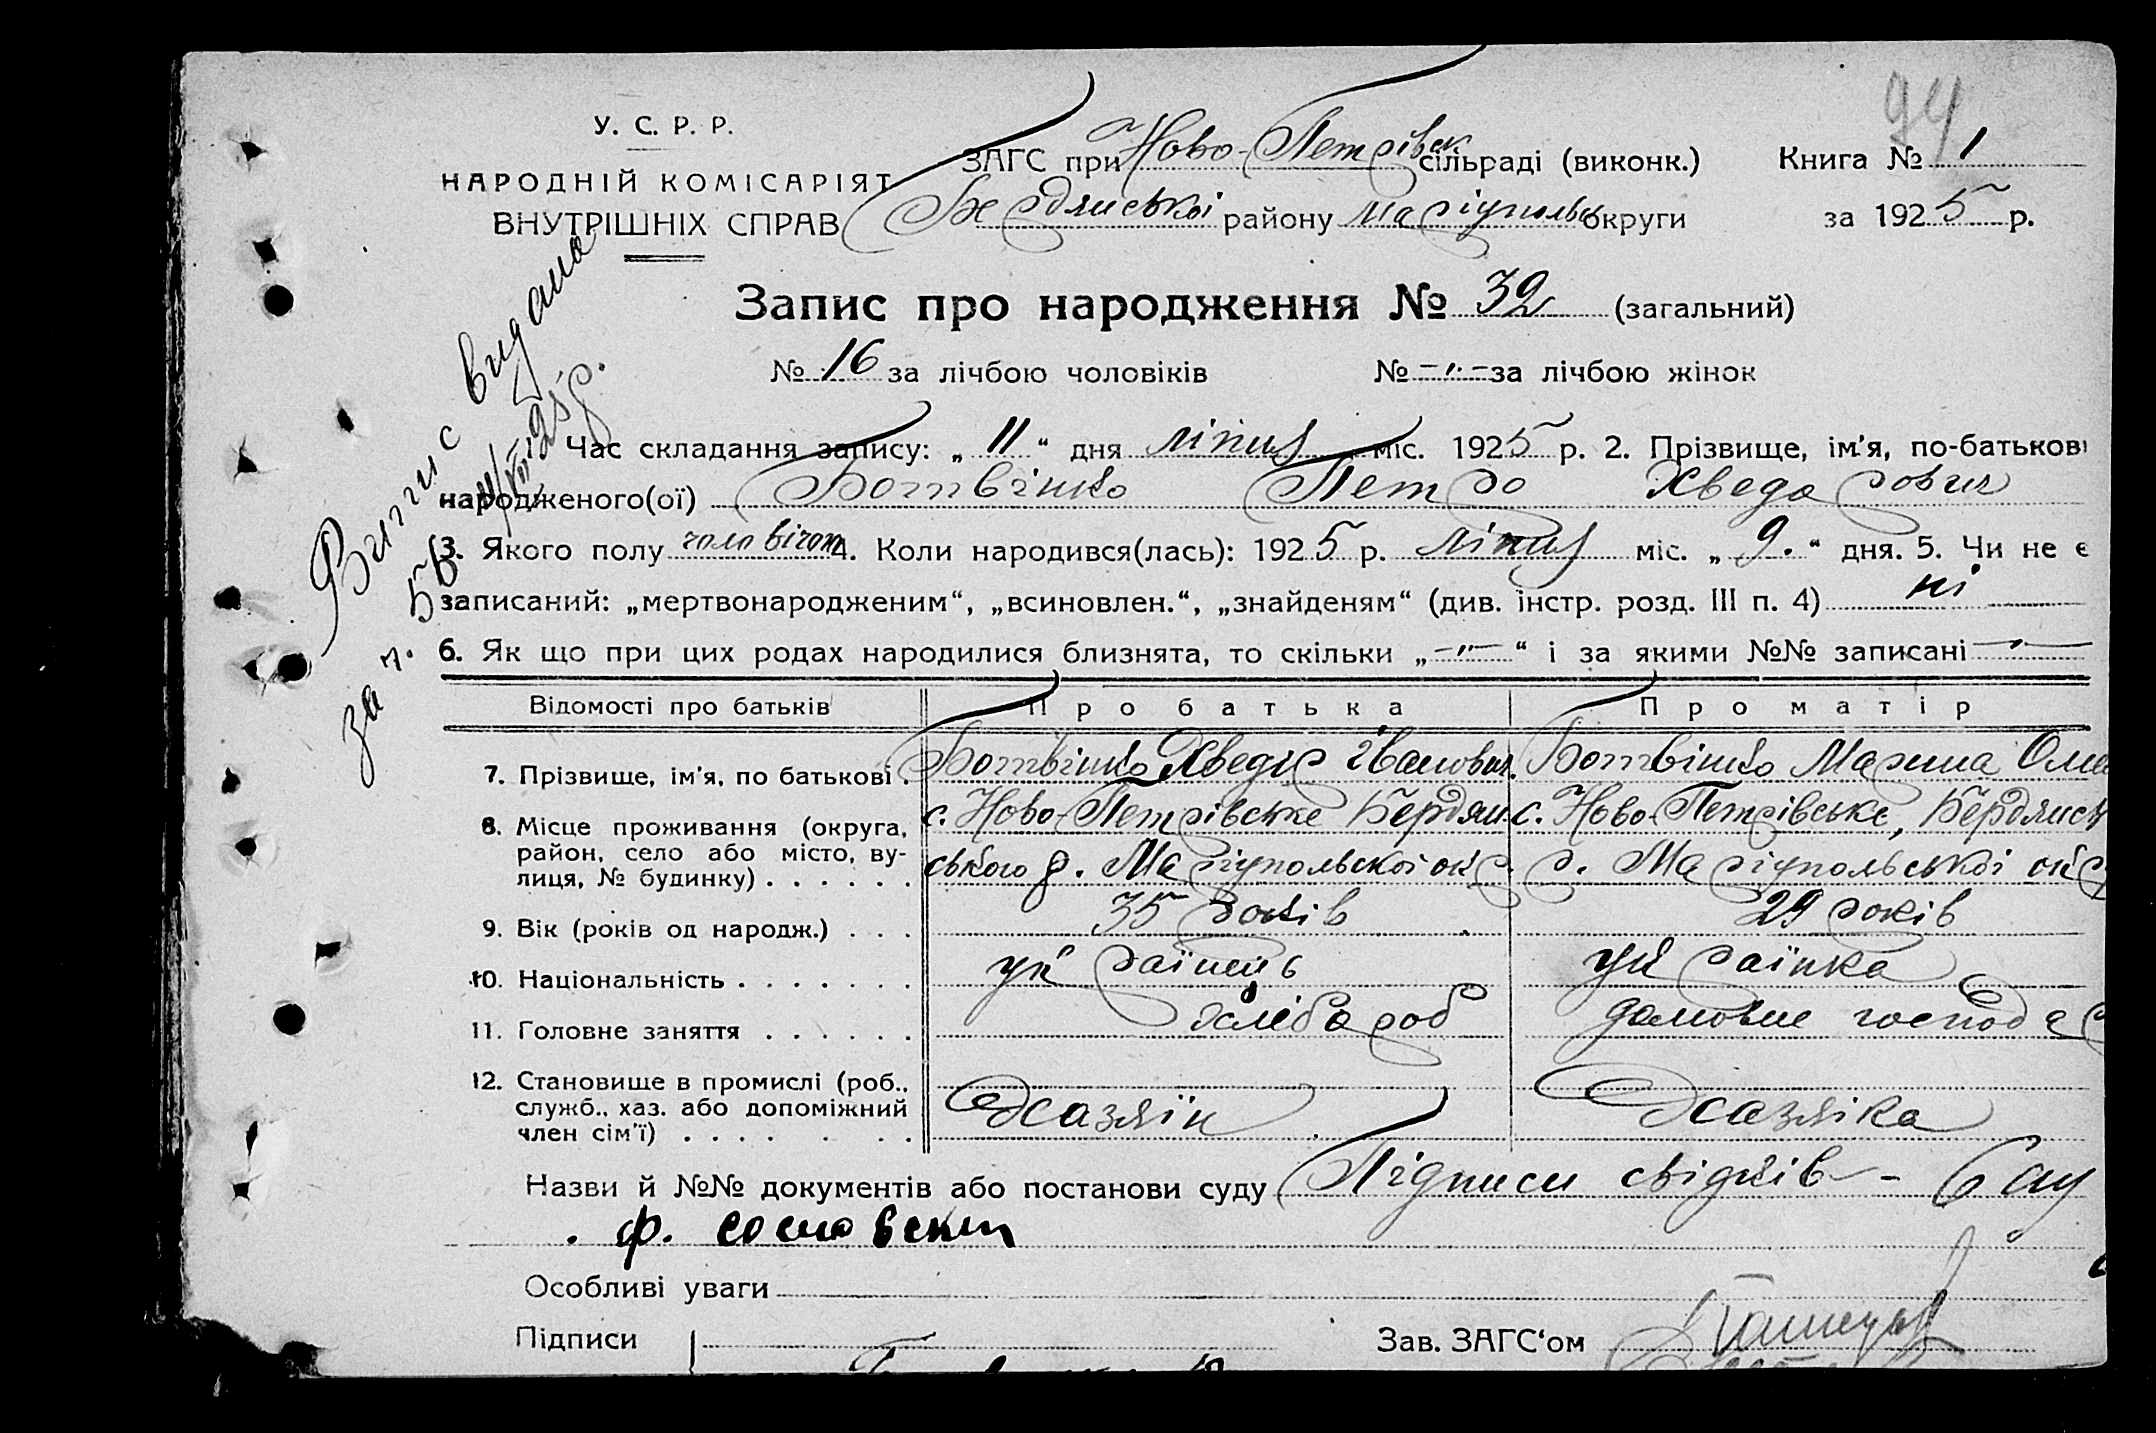 94
У. С. Р. Р.
НАРОДНІЙ КОМІСАРІЯТ
ВНУТРІШНІХ СПРАВ
ЗАГС при Ново-Петрівск сільраді (виконк.) Книга № 1
Бердянської району Маріупольс округи за 1925 р.
Запис про народження № 32 (загальний)
№ 16 за лічбою чоловіків № -"- за лічбою жінок
Випис видана
за ч. 56 11/VII 25 р.
Час складання запису: „ 11 “ дня липня міс. 1925 р. 2. Прізвище, ім'я, по-батькові
народженого(ої) Ботвінко Петро Хведорович
3. Якого полу чоловічої 4. Коли народився(лась): 1925 р. липня міс. „ 9. “ дня. 5. Чи не є
записаний: „мертвонародженим“, „всиновлен.“, „знайденям“ (див. інстр. розд. III п. 4) ні
6. Як що при цих родах народилися близнята, то скільки „ -"- “ і за якими №№ записані -"-
Відомості про батьків Про батька Про матір
7. Прізвище, ім'я, по батькові . Ботвінко Хведір Іванович. Ботвінко Марина
8. Місце проживання (округа, с. Ново-Петрівське Бердян с. Ново-Петрівське, Бердянськ
район, село або місто, ву-
лиця, № будинку) . . . . . . ського р. Маріупольскої окр. р. Маріупольської окр
9. Вік (років од народж.) . . . 35 років 29 років
10. Національність . . . . . . . українець українка
11. Головне заняття . . . . . . хлібороб домовне господар
12. Становище в промислі (роб.,
служб., хаз. або допоміжний Хазяїн Хазяіка
член сім'ї) . . . . . . .
Назви й №№ документів або постанови суду Підписи свідків -
. ф. сосновский
Особливі уваги
Підписи Зав. ЗАГС‘ом